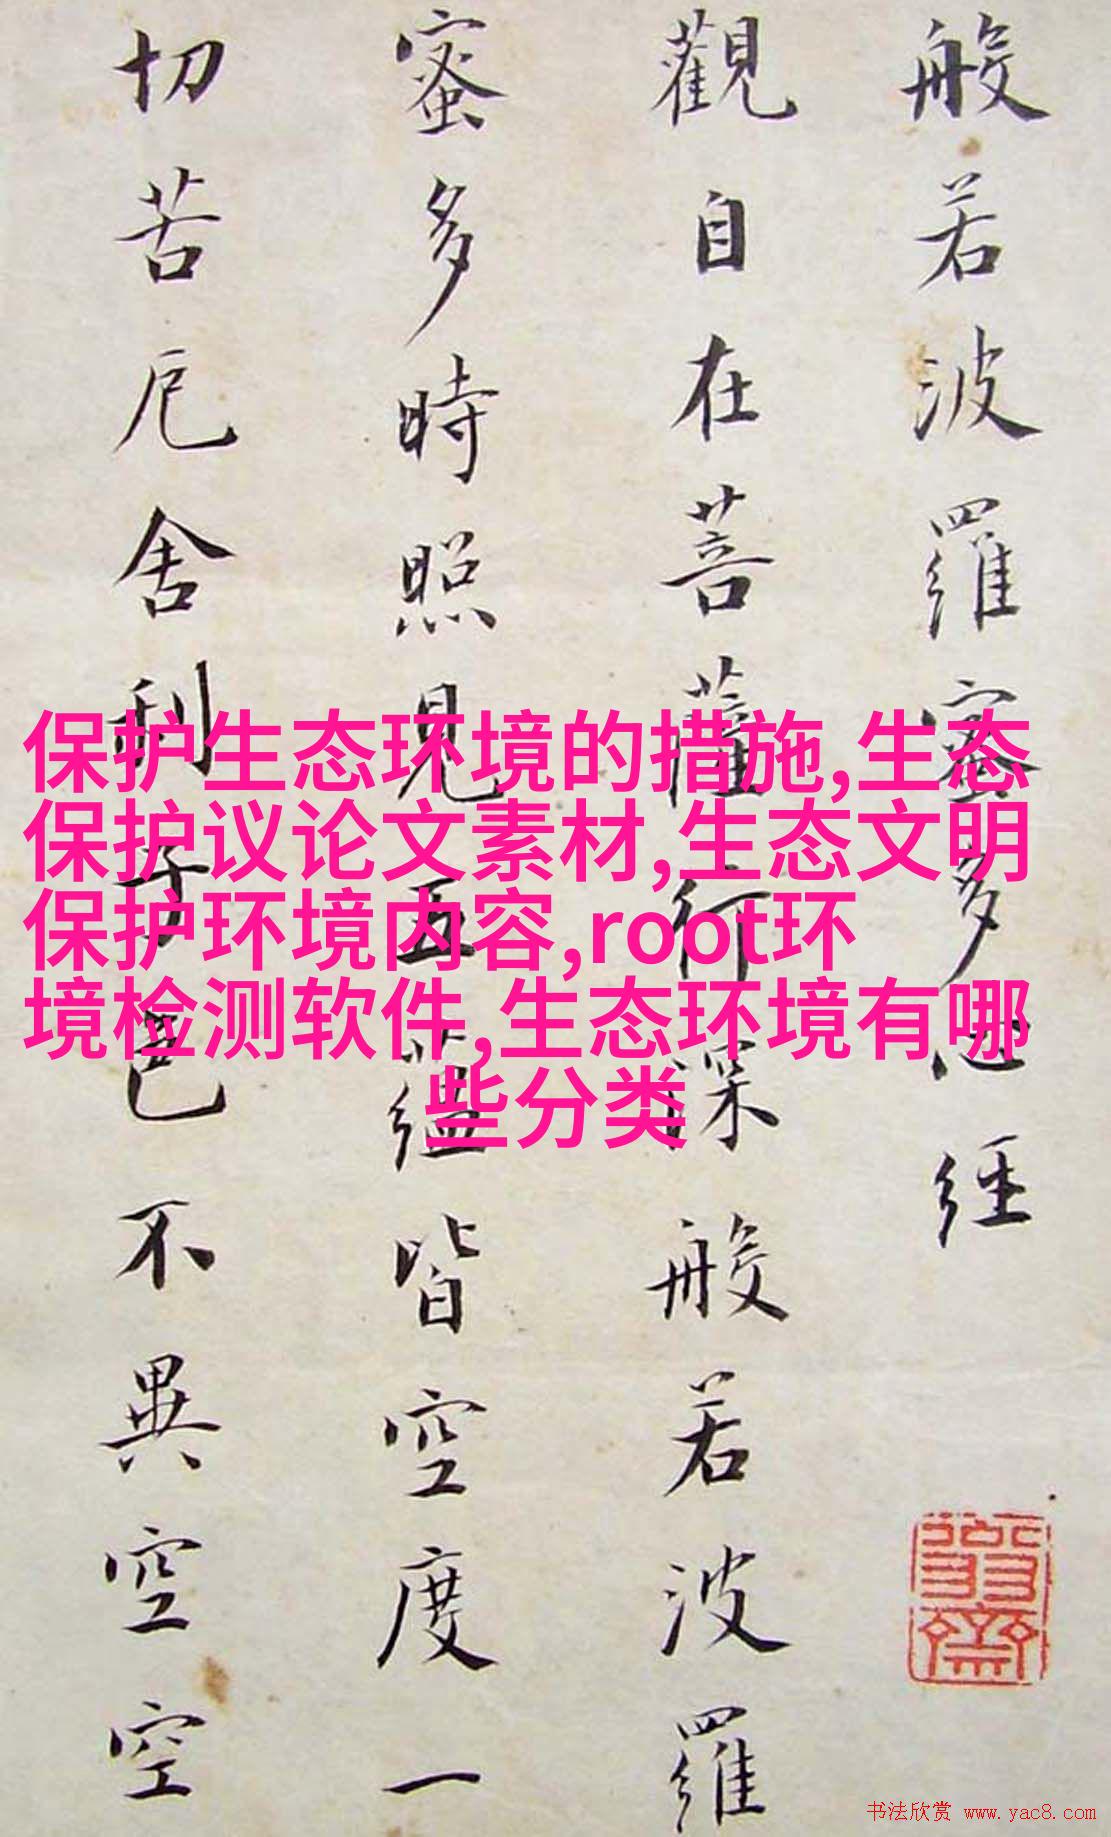 般若波羅蜜多心經
觀自在菩薩行深般若波羅
蜜多時照見五蘊皆空度一
切苦厄舍利子色不異空空
保护生态环境的措施,生态
保护议论文素材,生态文明
保护环境内容,root环
境检测软件,生态环境有哪
些分类
书法欣赏 www.yac8.com